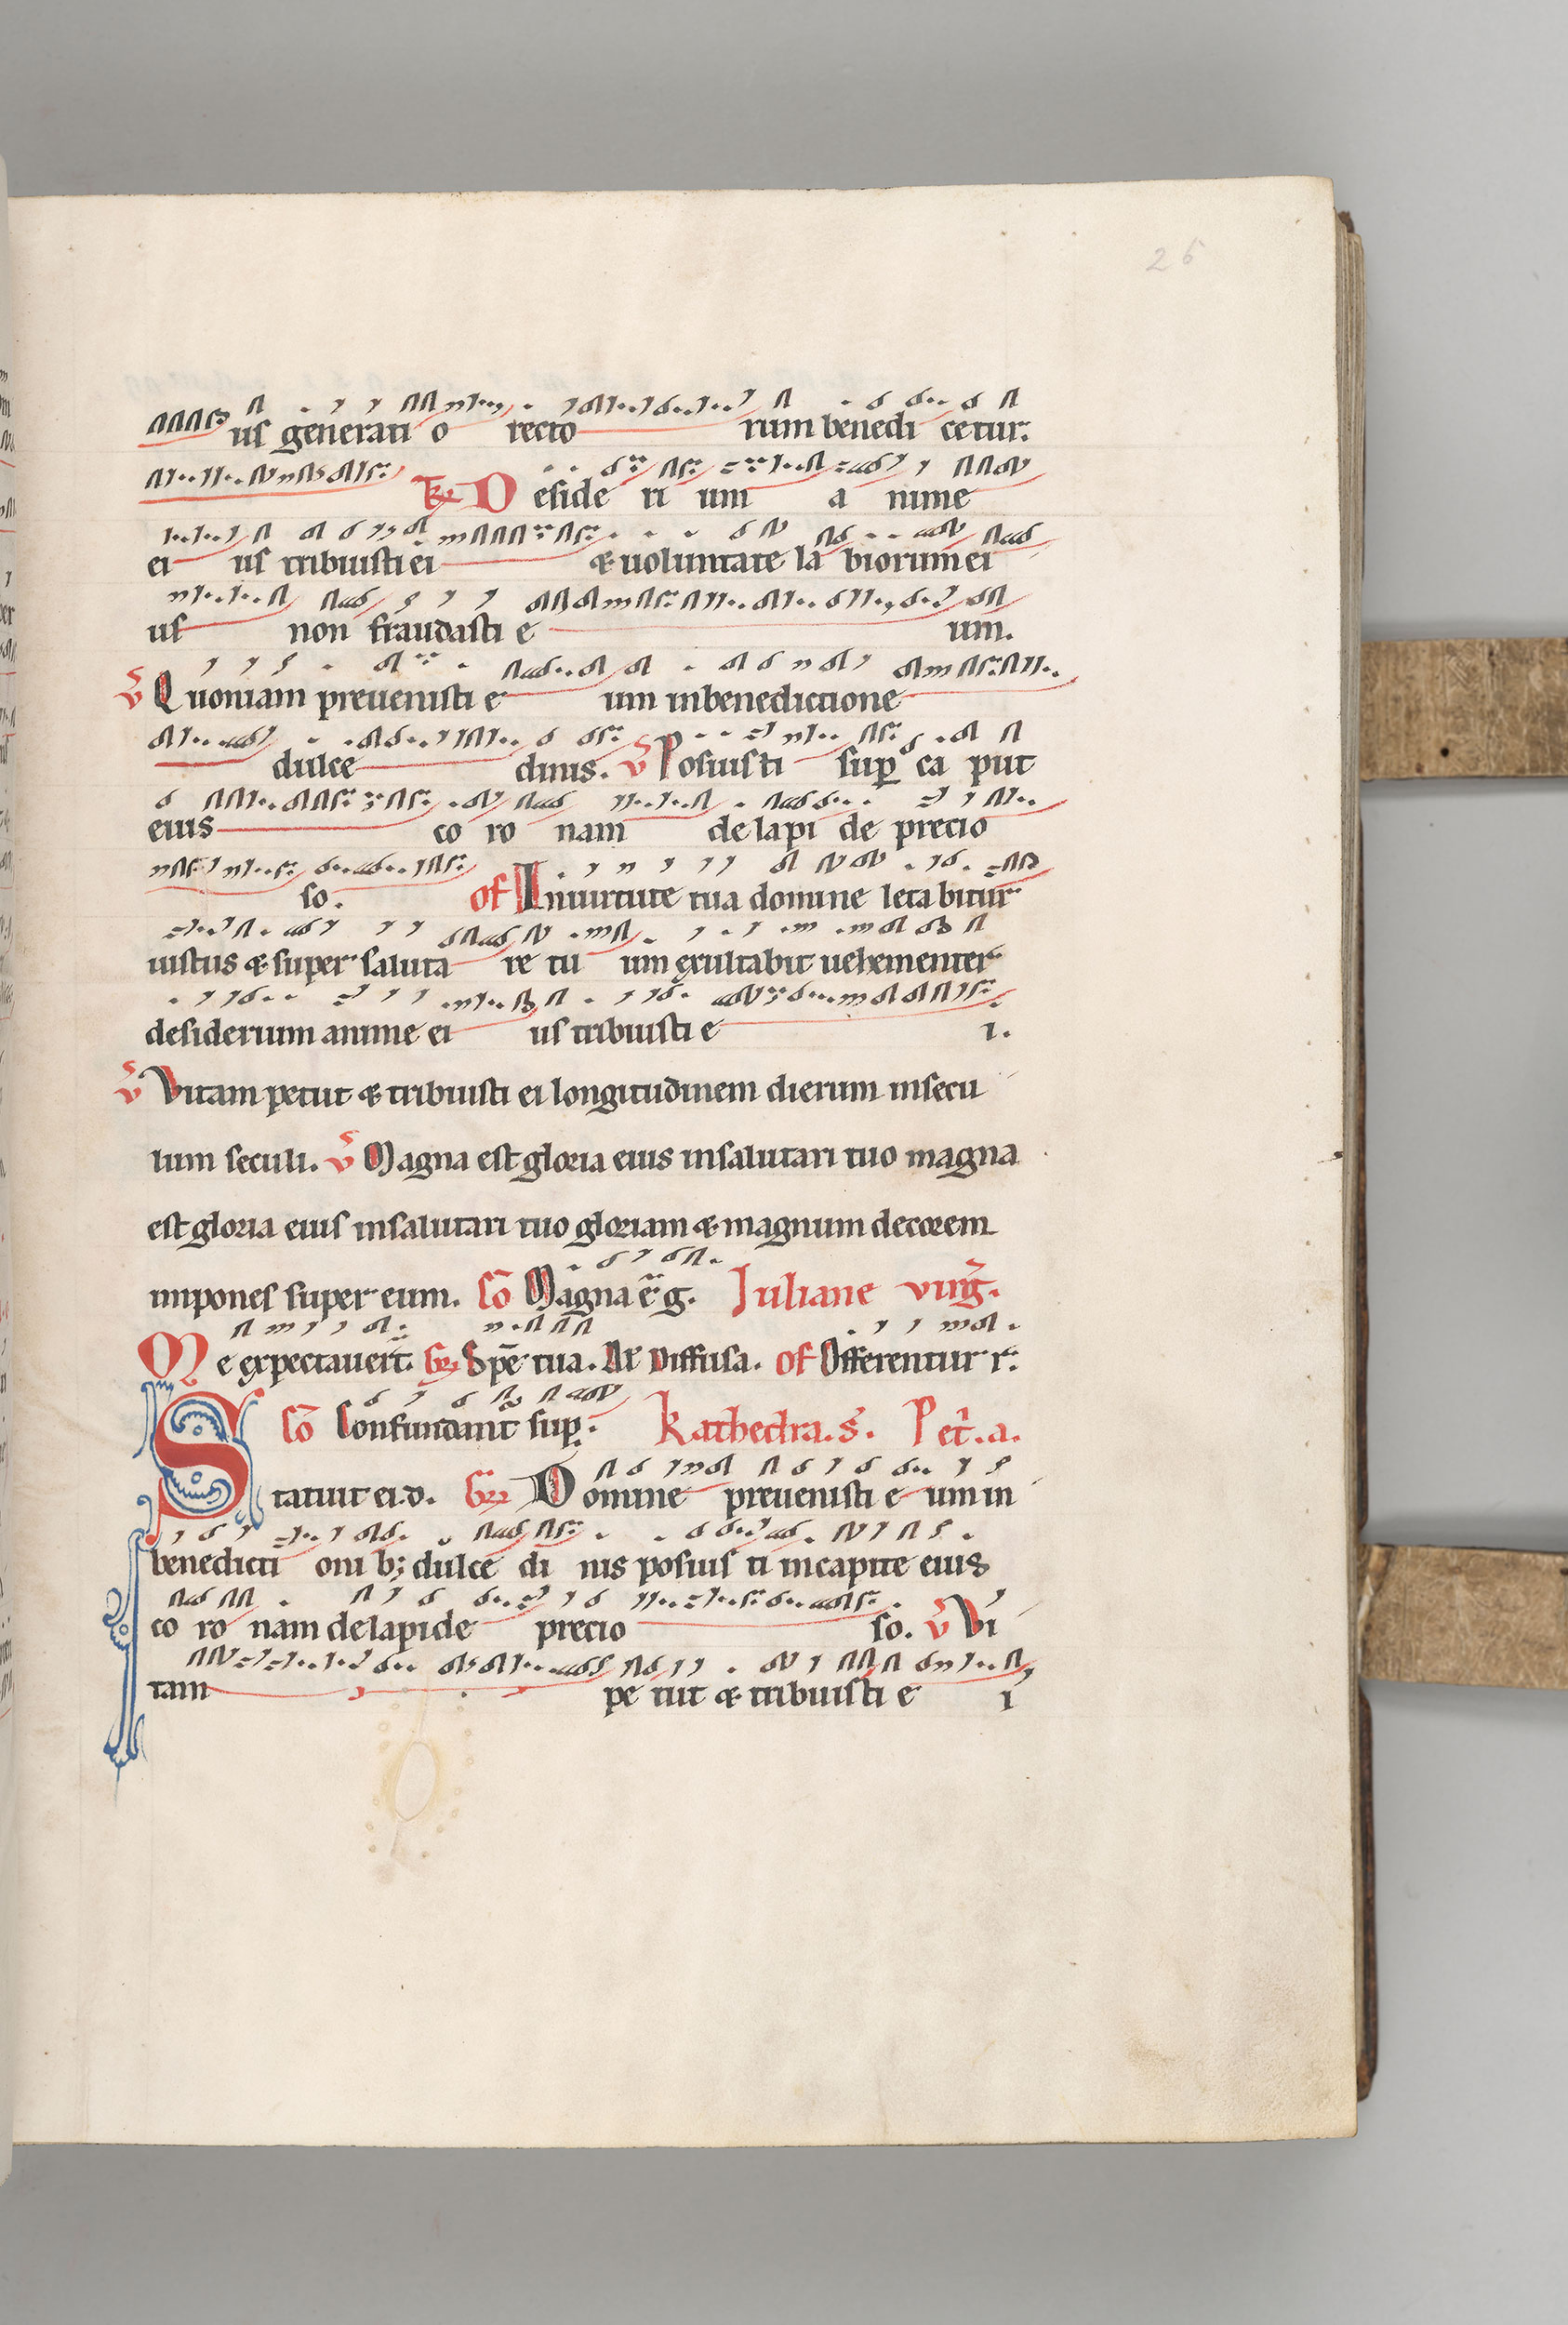 26
us generati o recto rum benedi cetur.
Tr̃ D eside ri um a nime
ei us tribuisti ei & uoluntate la biorum ei
us non fraudasti e um.
v̄ Quoniam preuenisti e um inbenedictione
dulce dinis. v̄ Posuisti sup ca put
eius co ro nam de lapi de precio
so. of Inuirtute tua domine leta bitur
iustus & super saluta re tu um exultabit uehementer
desiderium anime ei us tribuisti e i.
v̄ Vitam petiit & tribuisti ei longitudinem dierum insecu
lum seculi. v̄ Magna est gloria eius insalutari tuo magna
est gloria eius insalutari tuo gloriam & magnum decorem
impones super eum. Cō Magna ē g. Juliane virḡ.
Me expectauerit̄. Gr̄ Spē tua. Al̄ Diffusa. of Offerentur r.
Cō Confundant̄ sup. Kathedra. s̄. Pet̄. a.
Statuit ei. d. Gr̄ Domine preuenisti e um in
benedicti oni b; dulce di nis posuis ti incapite eius
co ro nam delapide precio so. v̄ Vi
tam pe tiit & tribuisti e i